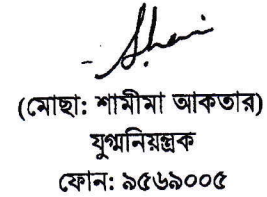 (মোছা: শামীমা আকতার)
যুগ্মনিয়ন্ত্রক
ফোন: ৯৫৬৯০০৫